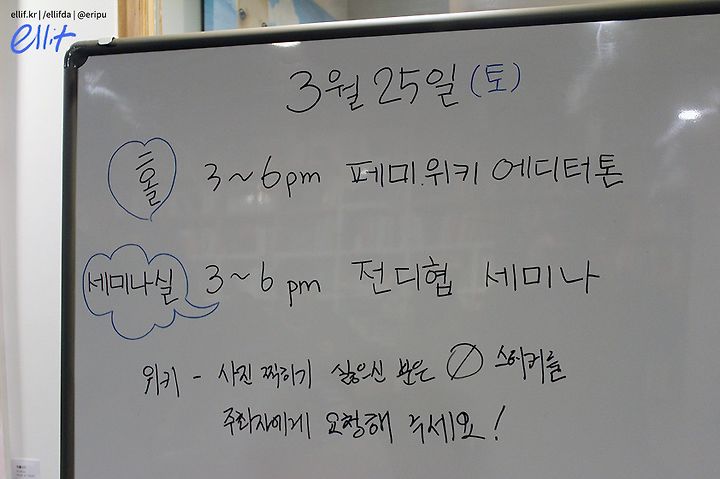 ellif.kr | /ellifda | @eripu
ellif
3월 25일 (토)
홀 3~6pm 페미위키 에디터톤
세미나실 3~6pm 전디협 세미나
위키 - 사진 찍히기 싫으신 분은 ∅ 스티커를
주최자에게 요청해 주세요!